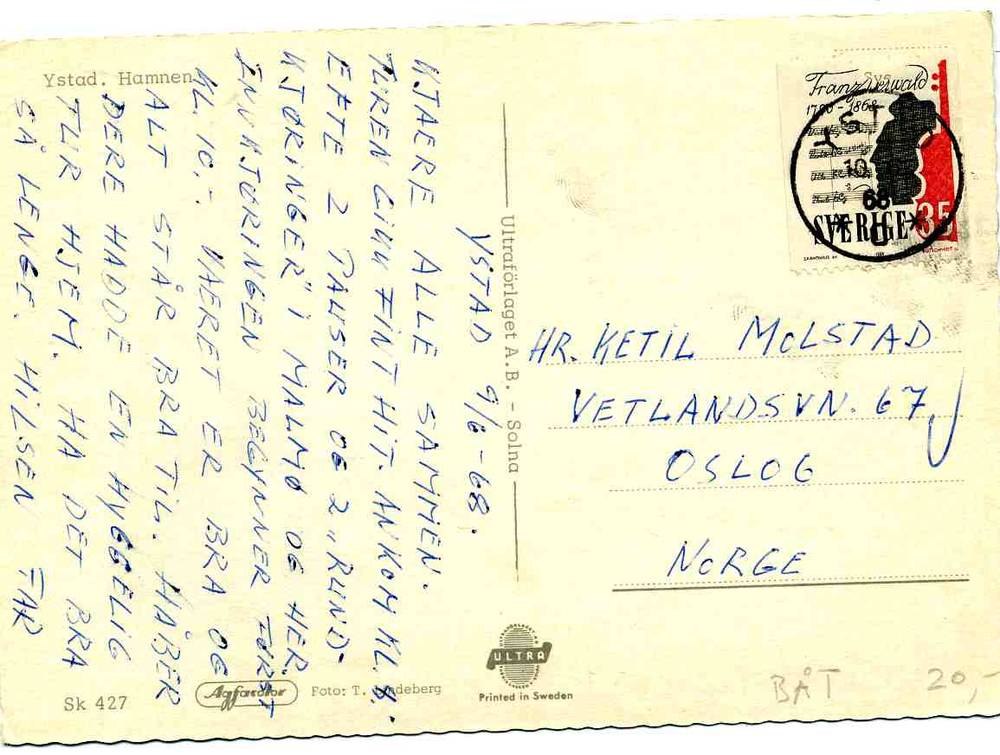 Ystad. Hamnen
YSTAD 9/6-68.
KJÆRE ALLE SAMMEN.
TUREN GIKK FINT HIT. ANKOM KL.
ETTE 2 PAUSER OG 2 „RUND-
KJØRINGER" I MALMØ OG HER.
INNKJØRINGEN BEGYNNER FØRST
KL. 10,- VÆRET ER BRA OG
ALT STÅR BRA TIL. HÅBER
DERE HADDE EN HYGGELIG
TUR HJEM. HA DET BRA
SÅ LENGE. HILSEN FAR
Ultraförlaget A.B. - Solna
Franz Berwald
1796-1868
SVERIGE 35
68
HR. KETIL MOLSTAD
VETLANDSVN. 67
OSLO 6
NORGE
ULTRA
Printed in Sweden
Sk 427
Agfacolor
Foto: T. Lindeberg
BÅT 20,-